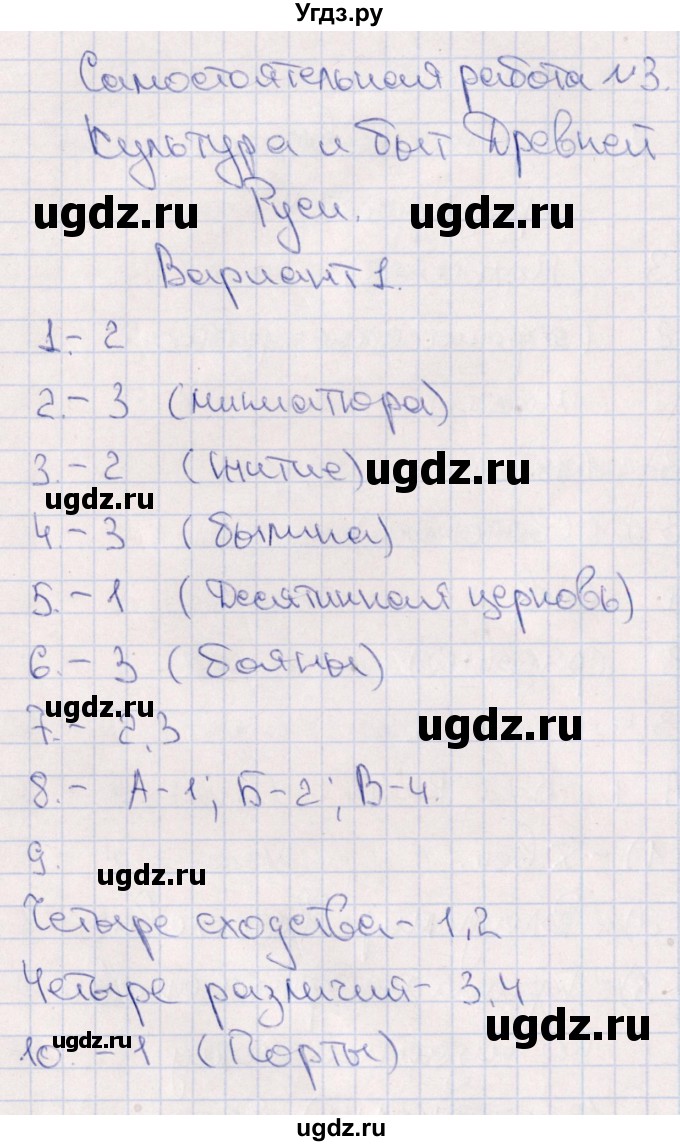 Угдз.ру
Самостоятельная работа №3.
Культура и быт Древней
Руси.
ugdz.ru ugdz.ru
Вариант 1.
1.- 2
2.- 3 (миниатюра)
3.- 2 (житие) ugdz.ru
ugdz.ru
4.- 3 (былина)
5.- 1 (Десятинная церковь)
6.- 3 (бояны)
ugdz.ru
7.- 2,3 ugdz.ru
8.- А-1; Б-2; В-4.
9.
ugdz.ru
Четыре сходства- 1,2
Четыре различия- 3,4
ugdz.ru
ugdz.ru
10.-1 (Порты)
ugdz.ru